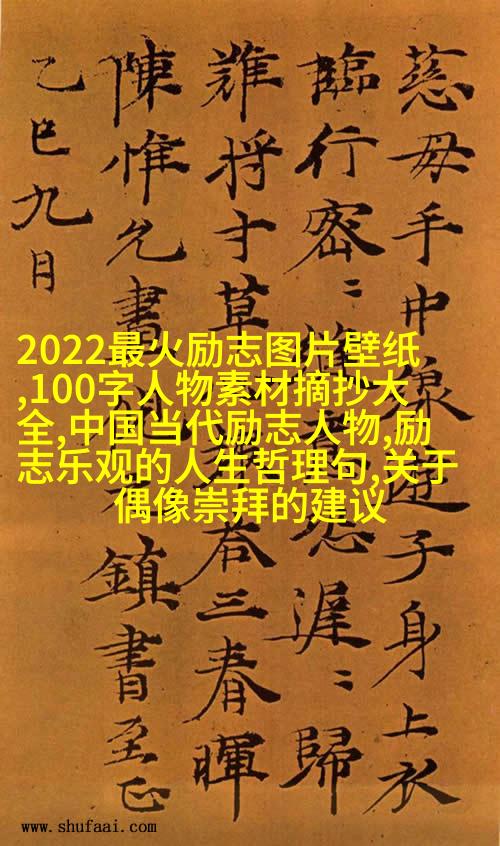 慈母手中線遊子身上衣
臨行密〻縫 恐遲〻歸
難将寸草 答三春暉
陳惟允書 鎮書至正
乙巳九月
2022最火励志图片壁纸
,100字人物素材摘抄大
全,中国当代励志人物,励
志乐观的人生哲理句,关于
偶像崇拜的建议
www.shufaai.com